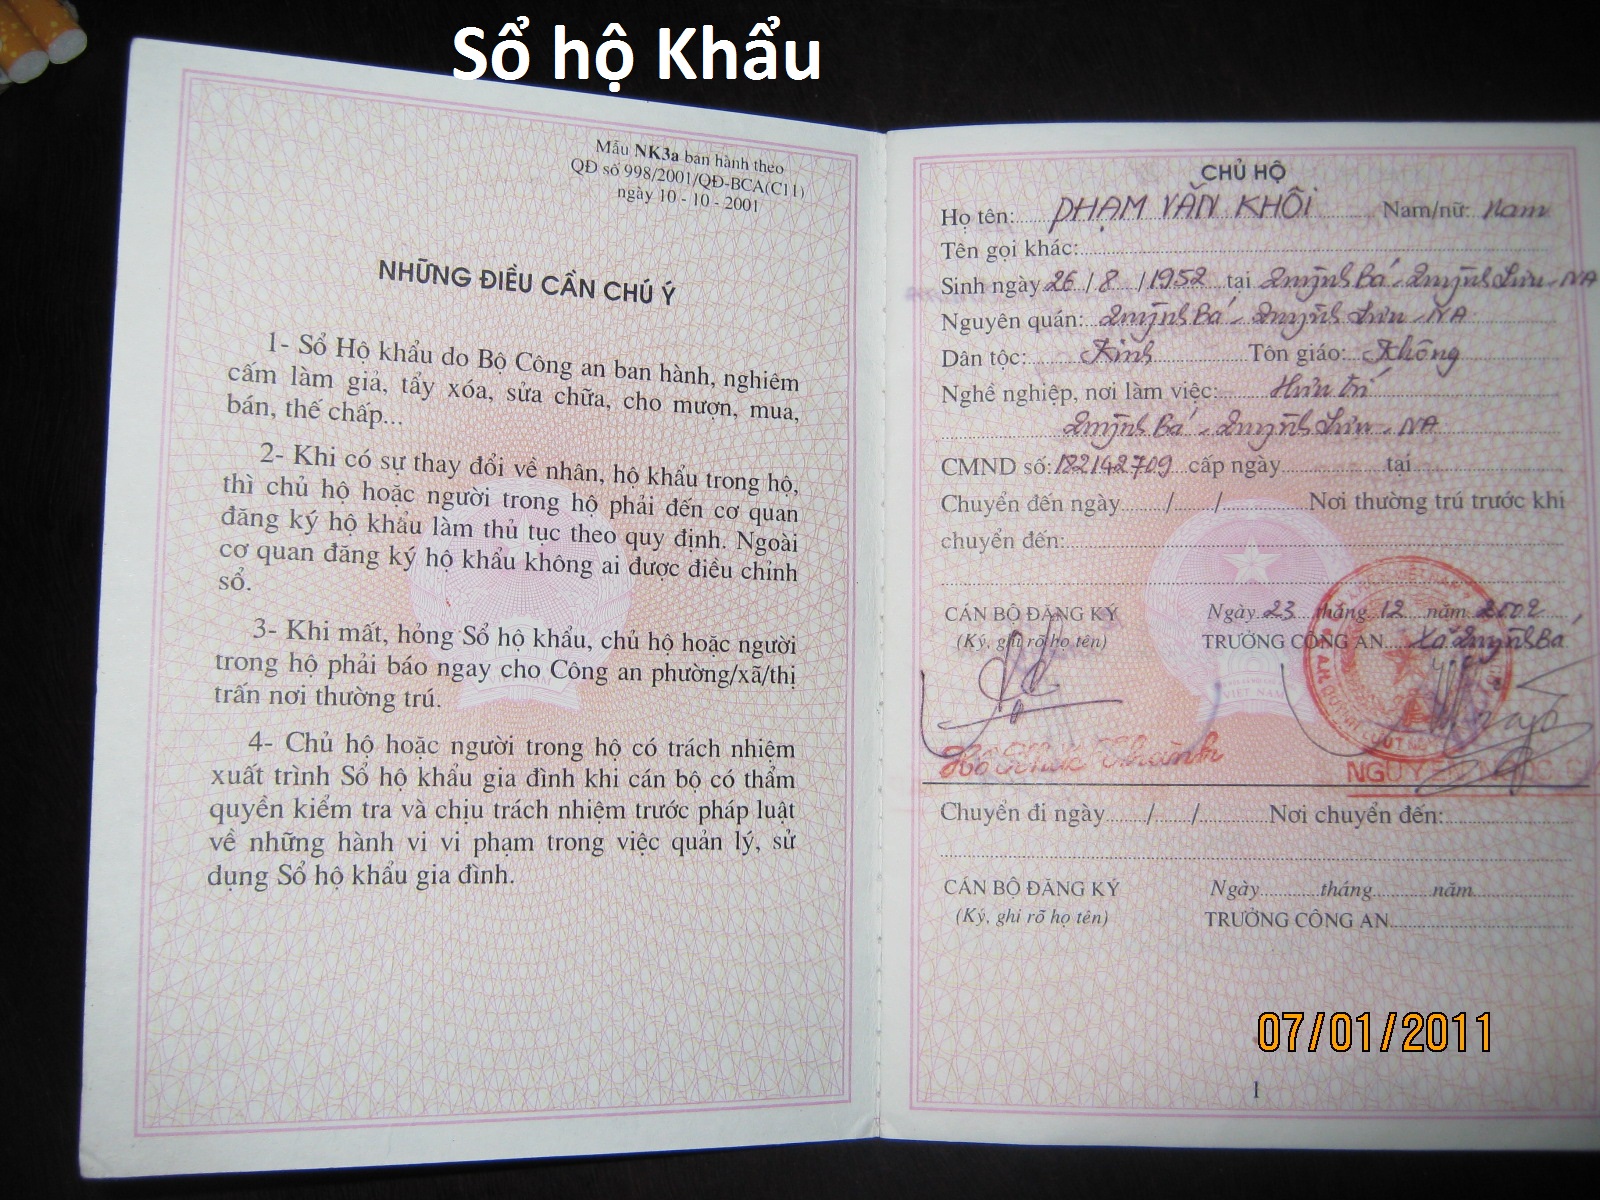 Sổ hộ Khẩu
Mẫu NK3a ban hành theo
QĐ số 998/2001/QĐ-BCA(C11)
ngày 10 - 10 - 2001
NHỮNG ĐIỀU CẦN CHÚ Ý
1- Sổ Hộ khẩu do Bộ Công an ban hành, nghiêm
cấm làm giả, tẩy xóa, sửa chữa, cho mượn, mua,
bán, thế chấp...
2- Khi có sự thay đổi về nhân, hộ khẩu trong hộ,
thì chủ hộ hoặc người trong hộ phải đến cơ quan
đăng ký hộ khẩu làm thủ tục theo quy định. Ngoài
cơ quan đăng ký hộ khẩu không ai được điều chỉnh
sổ.
3- Khi mất, hỏng Sổ hộ khẩu, chủ hộ hoặc người
trong hộ phải báo ngay cho Công an phường/xã/thị
trấn nơi thường trú.
4- Chủ hộ hoặc người trong hộ có trách nhiệm
xuất trình Sổ hộ khẩu gia đình khi cán bộ có thẩm
quyền kiểm tra và chịu trách nhiệm trước pháp luật
về những hành vi vi phạm trong việc quản lý, sử
dụng Sổ hộ khẩu gia đình.
CHỦ HỘ
Họ tên: PHẠM VĂN KHÔI Nam/nữ: Nam
Tên gọi khác:
Sinh ngày 26 / 8 / 1952 tại Quỳnh Bá - Quỳnh Lưu - NA
Nguyên quán: Quỳnh Bá - Quỳnh Lưu - NA
Dân tộc: Kinh Tôn giáo: Không
Nghề nghiệp, nơi làm việc: Hưu trí
Quỳnh Bá - Quỳnh Lưu - NA
CMND số: 182142709 cấp ngày tại
Chuyển đến ngày / / Nơi thường trú trước khi
chuyển đến:
CÁN BỘ ĐĂNG KÝ Ngày 23 tháng 12 năm 2002
(Ký, ghi rõ họ tên) TRƯỞNG CÔNG AN Xã Quỳnh Bá
VIỆT NAM
Hồ Khắc Thành NGUYỄN
Chuyển đi ngày / / Nơi chuyển đến:
CÁN BỘ ĐĂNG KÝ Ngày tháng năm
(Ký, ghi rõ họ tên) TRƯỞNG CÔNG AN
07/01/2011
1